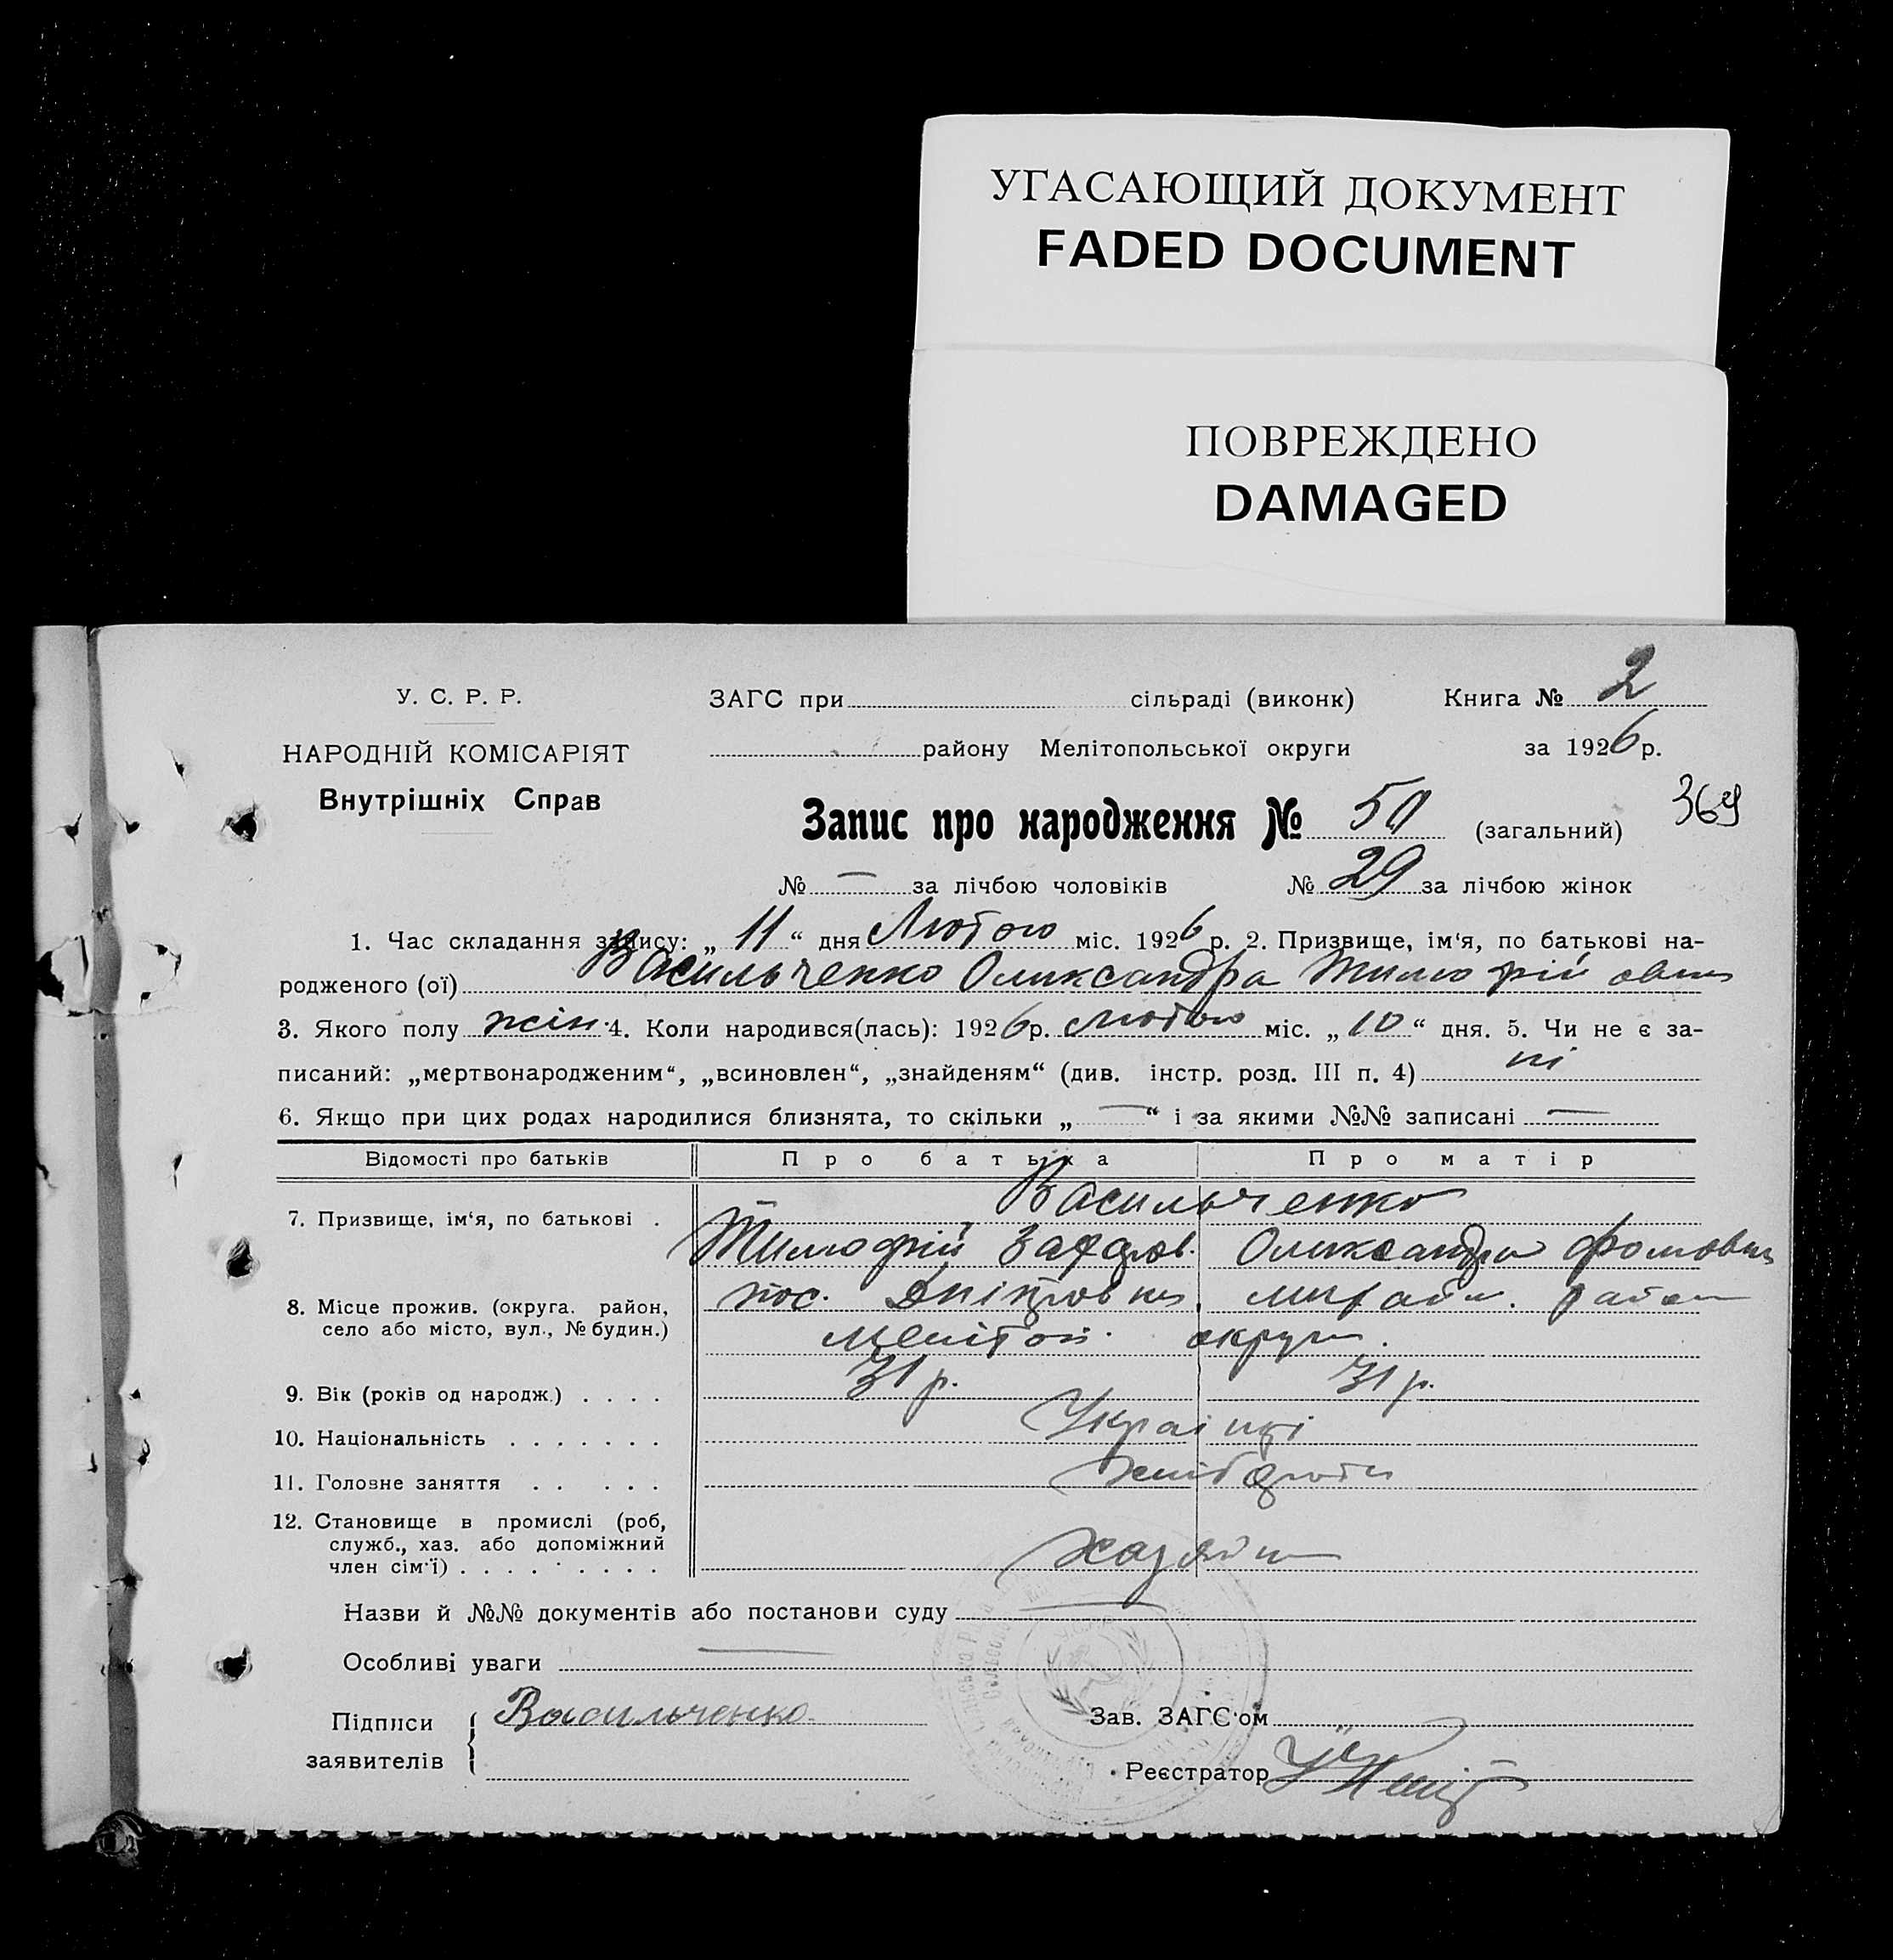 УГАСАЮЩИЙ ДОКУМЕНТ
FADED DOCUMENT
ПОВРЕЖДЕНО
DAMAGED
У. С. Р. Р.
НАРОДНІЙ КОМІСАРІЯТ
Внутрішніх Справ
ЗАГС при сільраді (виконк) Книга № 2
району Мелітопольської округи за 1926 р.
Запис про народження № 50 (загальний) 369
№ — за лічбою чоловіків № 29 за лічбою жінок
1. Час складання запису: „ 11 “ дня Лютого міс. 1926 р. 2. Призвище, ім‘я, по батькові на-
родженого (ої) Васильченко Олександра
3. Якого полу жін. 4. Коли народився(лась): 1926 р. Лютого міс. „ 10 “ дня. 5. Чи не є за-
писаний: „мертвонародженим“, „всиновлен“, „знайденям“ (див. інстр. розд. III п. 4) ні
6. Якщо при цих родах народилися близнята, то скільки „ — “ і за якими №№ записані —
Відомості про батьків Про батька Про матір
7. Призвище, ім‘я, по батькові . Васильченко
Тимофій Олександра Фомовна
8. Місце прожив. (округа. район,
село або місто, вул., № будин.)
пос. район
Мелітоп. округи.
9. Вік (років од народж.) . . . . 31 р. 31 р.
10. Національність . . . . . . . Українці
11. Головне заняття . . . . .
12. Становище в промислі (роб,
служб., хаз. або допоміжний
член сім‘ї) . . . . . . . . . Хазяїн
Назви й №№ документів або постанови суду —
Особливі уваги —
Підписи
заявителів
Васильченко
Зав. ЗАГС‘ом
Реєстратор